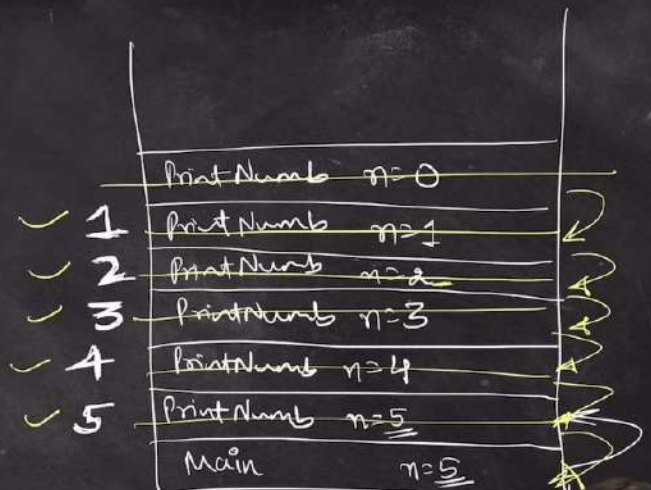 PrintNumb n=0
1 PrintNumb n=1
2 PrintNumb n=2
3 PrintNumb n=3
4 PrintNumb n=4
5 PrintNumb n=5
Main n=5